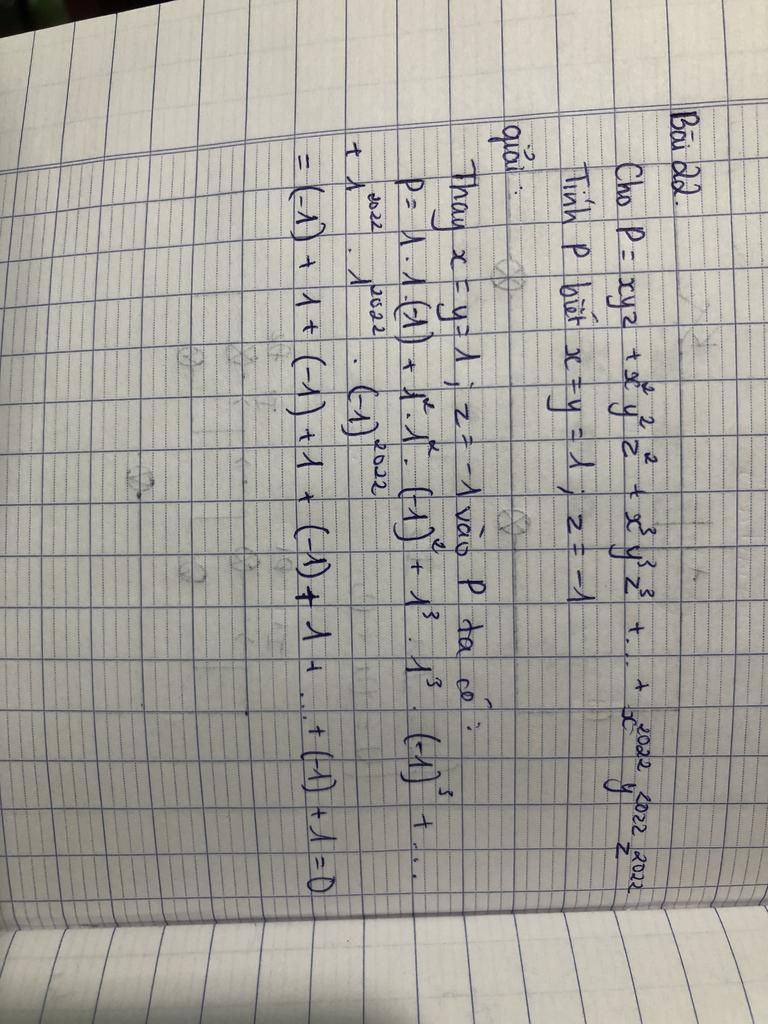 Bài 22.
Cho P = xyz + x² y² z² + x³ y³ z³ + ... + x²⁰²² y²⁰²² z²⁰²²
Tính P biết x = y = 1 ; z = -1
giải :
Thay x = y = 1 ; z = -1 vào P ta có :
P = 1 . 1 . (-1) + 1² . 1² . (-1)² + 1³ . 1³ . (-1)³ + ...
+ 1²⁰²² . 1²⁰²² . (-1)²⁰²²
= (-1) + 1 + (-1) + 1 + (-1) + 1 + ... + (-1) + 1 = 0